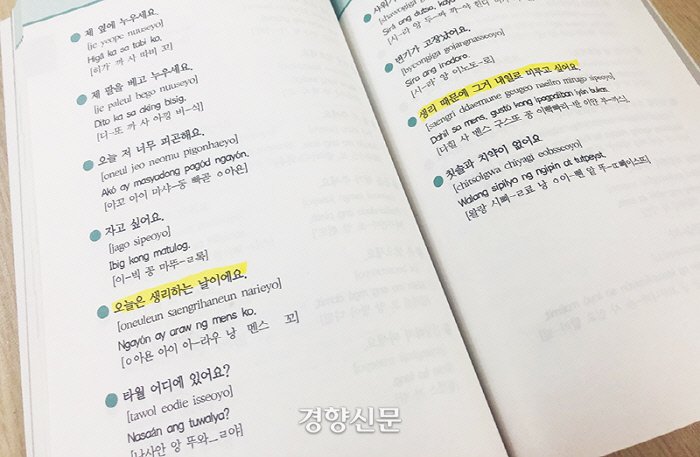 제 옆에 누우세요.
[je yeope nuuseyo]
Higa ka sa tabi ko.
[히가 까 사 따비 꼬]
제 팔을 베고 누우세요.
[je paleul bego nuuseyo]
Dito ka sa aking bisig.
[디-또 까 사 아낑 비-식]
오늘 저 너무 피곤해요.
[oneul jeo neomu pigonhaeyo]
Akó ay masyadong pagód ngayón.
[아꼬 아이 마샤-동 빡곧 ㅇ아욘]
자고 싶어요.
[jago sipeoyo]
Ibig kong matulog.
[이-빅 꽁 마뚜-ㄹ록]
오늘은 생리하는 날이에요.
[oneuleun saengrihaneun narieyo]
Ngayón ay araw ng mens ko.
[ㅇ아욘 아이 아-라우 낭 멘스 꼬]
타월 어디에 있어요?
[tawol eodie isseoyo]
Nasaán ang tuwalya?
[나사안 앙 뚜와-ㄹ야]
변기가 고장났어요.
[byeongiga gojangnasseoyo]
Sira ang inodoro.
[시-라 앙 이노도-로]
생리 때문에 그거 내일로 미루고 싶어요.
[saengri ddaemune geugeo naeillo mirugo sipeoyo]
Dahil sa mens, gustó kong ipagpaliban iyán bukas.
칫솔과 치약이 없어요
[chitsolgwa chiyagi eobsseoyo]
Walang sipilyo ng ngipin at tutpeyst.
경향신문